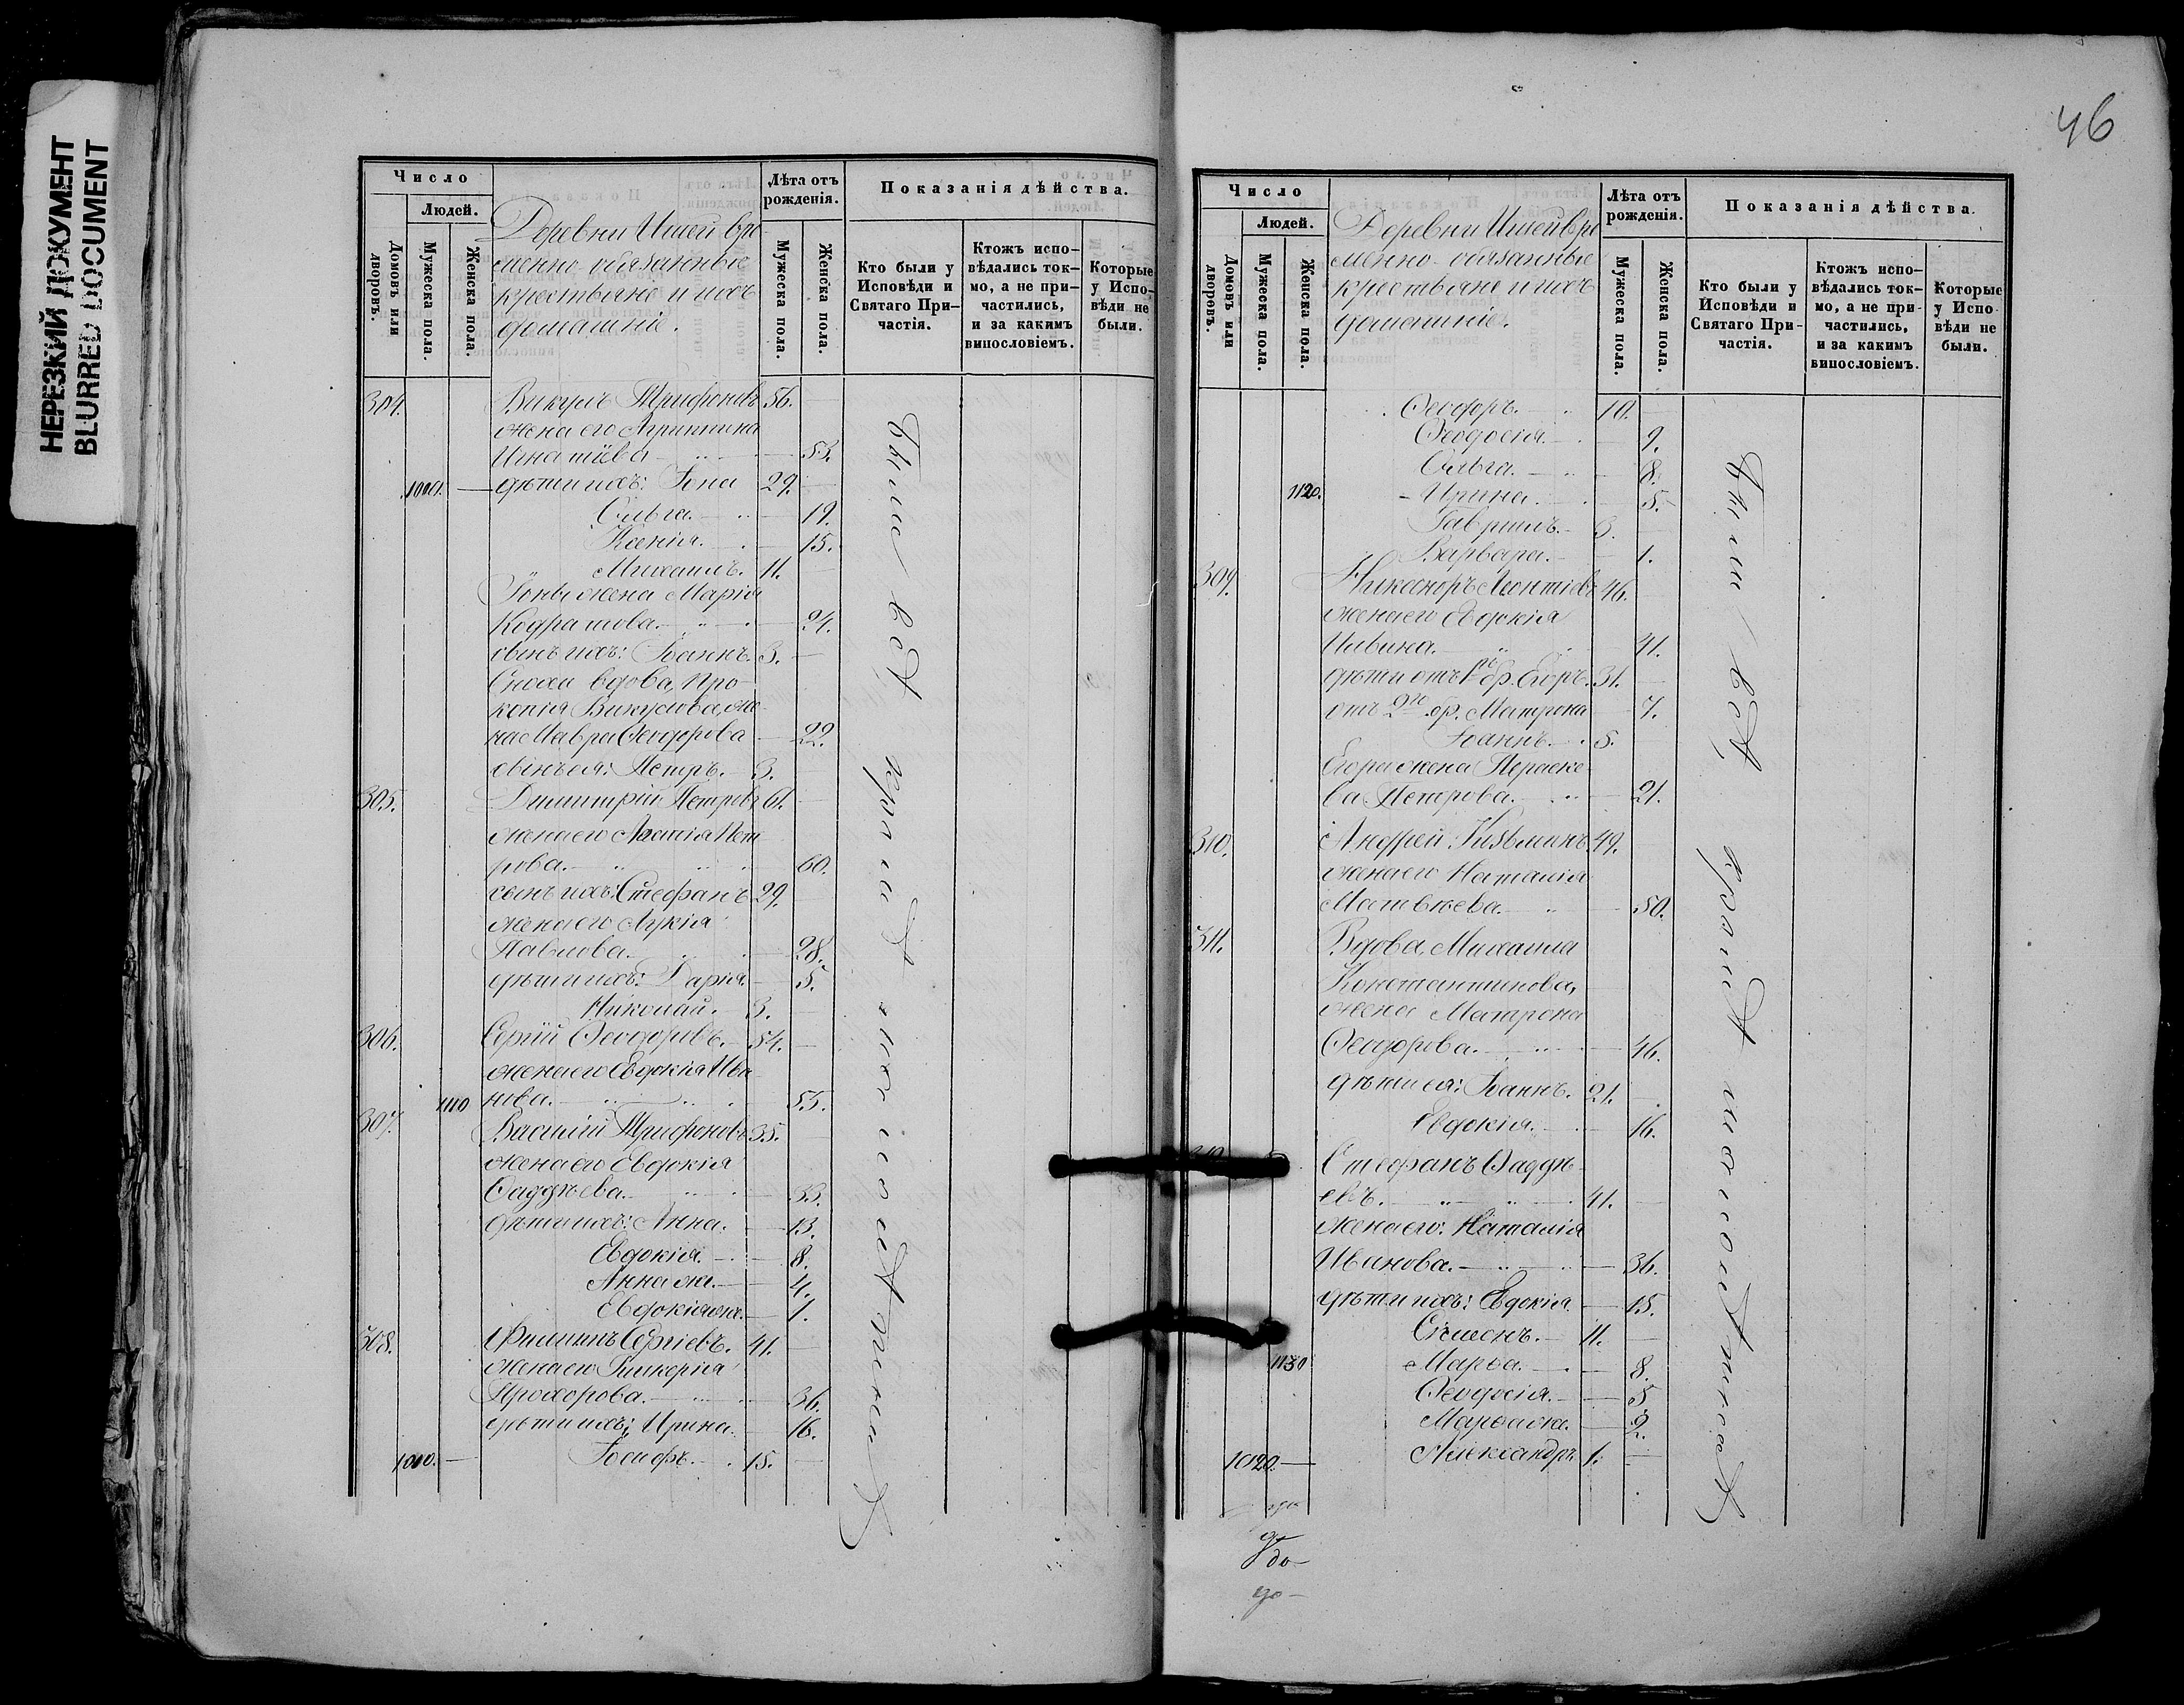 НЕРЕЗКИЙ ДОКУМЕНТ
BLURRED DOCUMENT
Число
Людей.
Домовъ или дворовъ.
Мужеска пола.
Женска пола.
Деревни Ишей вре
менно-обязанные
крестьяне и ихъ
домашніе.
Лѣта отъ рожденія.
Мужеска пола.
Женска пола.
Показанія дѣйства.
Кто были у Исповѣди и Святаго При-частія.
Ктожъ испо-вѣдались ток-мо, а не при-частились, и за какимъ винословіемъ.
Которые у Испо-вѣди не были.
304. Викулъ Трифоновъ 56.
жена его Агриппина
Игнатіева 53.
дѣти ихъ: Іона 29.
Ольга. 19.
Ксенія. 15.
Михаилъ. 11.
Іоны жена Марія
Кодратова. 24.
сынъ ихъ: Іоаннъ. 3.
Сноха вдова, Про-
копія Викулова, же
на Мавра Ѳеодорова 22.
сынъ ея: Петръ. 3.
305. Димитрій Петровъ 61.
жена его Агаѳія Пет
рова. 60.
сынъ ихъ: Стефанъ 29.
жена его Лукія
Павлова. 28.
дѣти ихъ: Дарія. 5.
Николай. 3.
306. Сергій Ѳеодоровъ. 54.
жена его Евдокія Ива
1110 нова. 55.
307. Василій Трифоновъ 35.
жена его Евдокія
Ѳаддѣева. 33.
дѣти ихъ: Анна. 13.
Евдокія. 8.
Анна же. 4.
Евдокія же. 1.
308. Филиппъ Сергіевъ. 41.
жена его Гликерія
Прохорова. 36.
дѣти ихъ: Ирина. 16.
1010. Іосифъ. 15.
Были всѣ кромѣ малолѣтнихъ
46
Число
Людей.
Домовъ или дворовъ.
Мужеска пола.
Женска пола.
Деревни Ишей вре
менно-обязанные
крестьяне и ихъ
домашніе.
Лѣта отъ рожденія.
Мужеска пола.
Женска пола.
Показанія дѣйства.
Кто были у Исповѣди и Святаго При-частія.
Ктожъ испо-вѣдались ток-мо, а не при-частились, и за какимъ винословіемъ.
Которые у Испо-вѣди не были.
Ѳеодоръ. 10.
Ѳеодосія. 9.
Ольга. 8.
1120. Ирина. 5.
Гавріилъ. 3.
Варвара. 1.
309. Никаноръ Леонтіевъ 46.
жена его Евдокія
Ивина. 41.
дѣти отъ 1го бр. Егоръ. 31.
отъ 2го бр. Матрона 7.
Іоаннъ. 5.
Егора жена Параске-
ва Петрова. 21.
310. Андрей Кузьминъ. 49.
жена его Наталія
Матвѣева. 50.
311. Вдова, Михаила
Константинова,
жена Матрона
Ѳеодорова. 46.
дѣти ея: Іоаннъ. 21.
Евдокія. 16.
Стефанъ Ѳаддѣ-
евъ. 41.
жена его: Наталія
Иванова. 36.
дѣти ихъ: Евдокія. 15.
Симеонъ. 11.
1130 Марѳа. 8.
Ѳеодосія. 5
Марѳа же. 2.
1020. Александръ 1.
Были всѣ кромѣ малолѣтнихъ